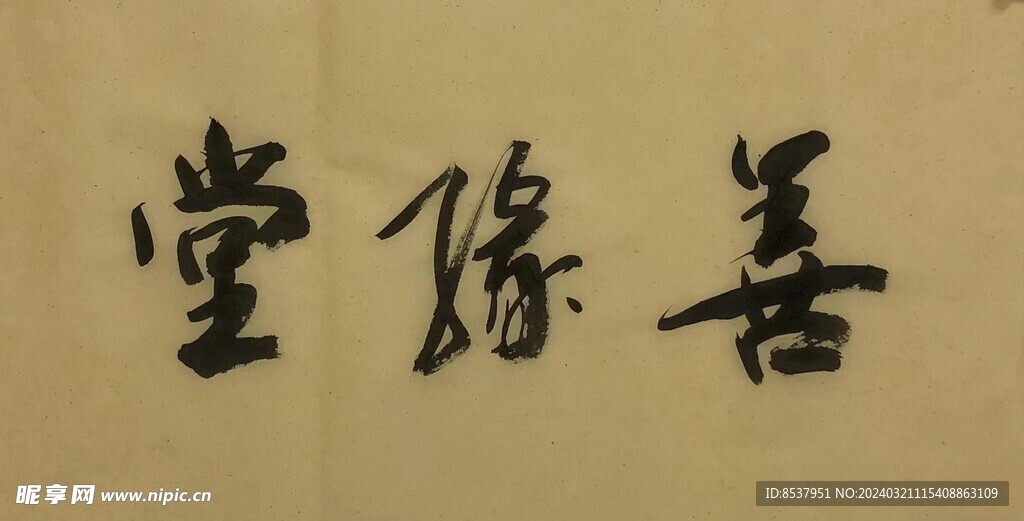 善缘堂
昵享网 www.nipic.cn
ID:8537951 NO:20240321115408863109